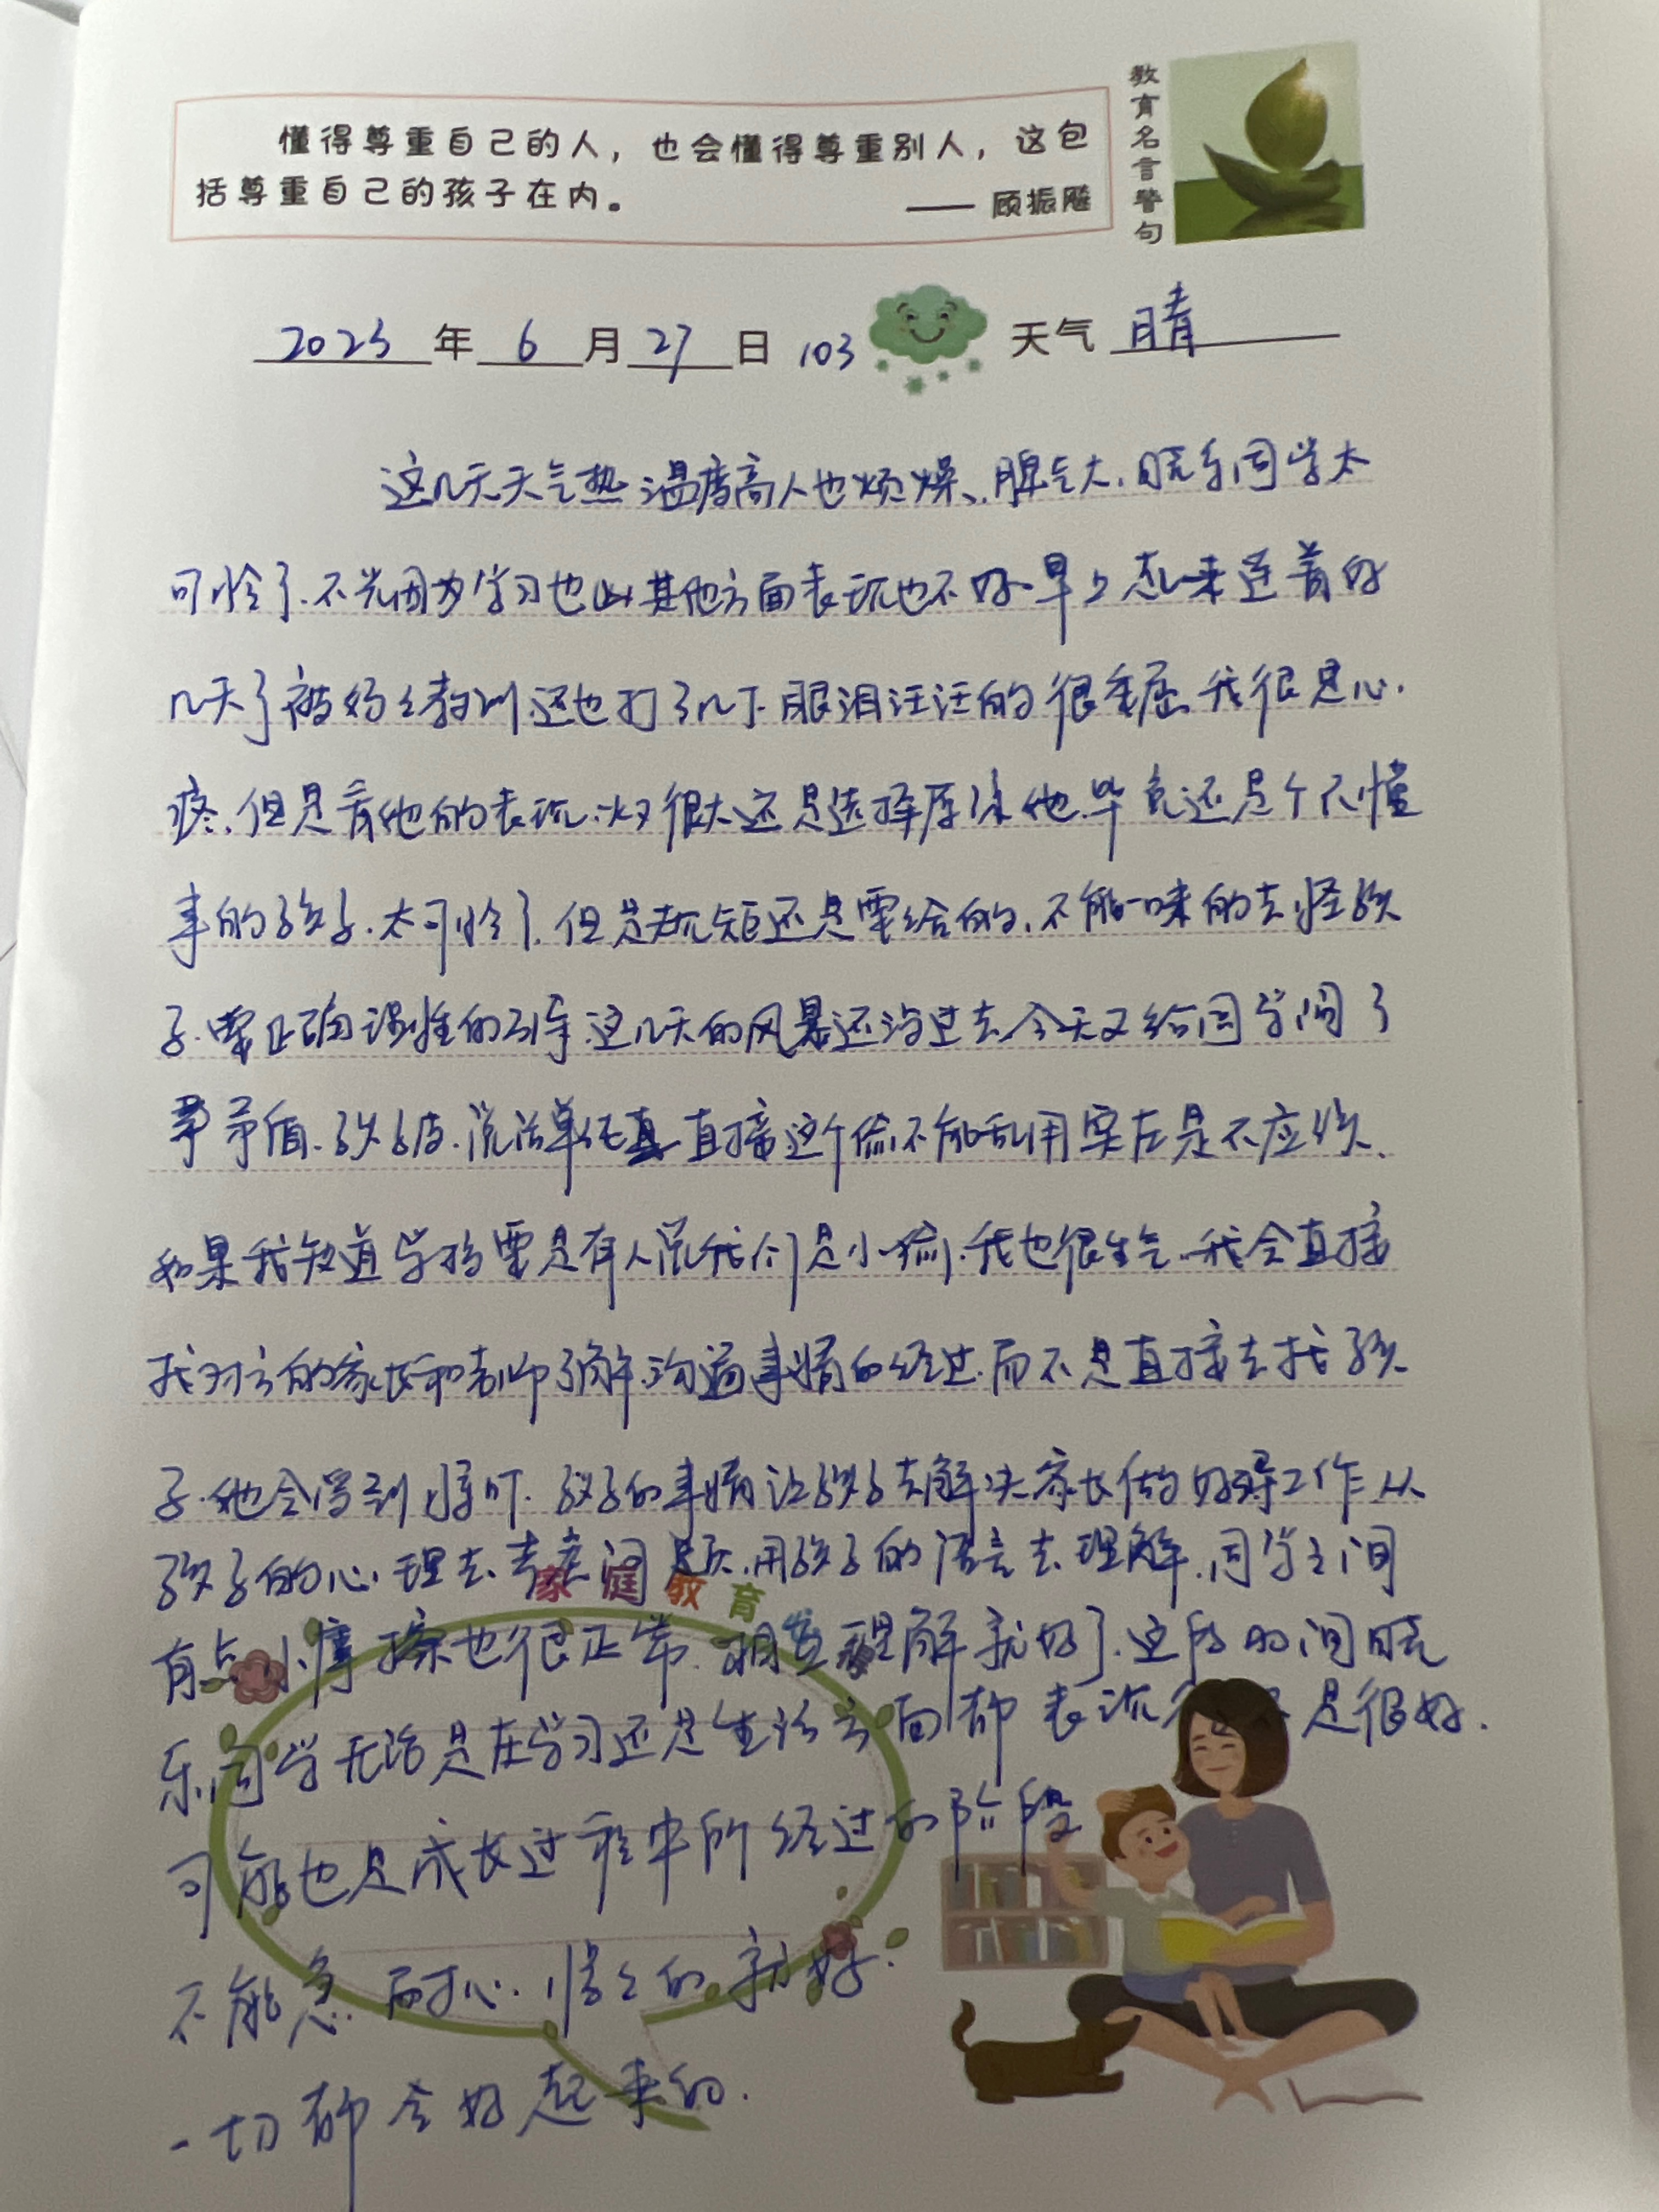 懂得尊重自己的人，也会懂得尊重别人，这包
括尊重自己的孩子在内。 —— 顾振飚
教育名言警句
2023年6月27日 103 天气 晴
这几天天气热温度高人也烦燥、脾气大,晓乐同学太
可怜了.不光因为学习也 其他方面表现也不好.早上起来连着好
几天了被妈妈教训还也打了几下.眼泪汪汪的很委屈.我很是心
疼.但是看他的表现.火很大还是选择原谅他.毕竟还是个不懂
事的孩子.太可怜了.但是规矩还是要给的.不能一味的去怪孩
子.要正确 性的引导.这几天的风暴还没过去.今天又给同学闹了
矛盾.孩子皮.说话单纯 直接这个偷不能乱用实在是不应该.
如果我知道学校要是有人说我们是小偷.我也很生气.我会直接
找对方的家长和老师了解沟通事情的经过.而不是直接去找孩
子.他会受到惊吓.孩子的事情让孩子去解决家长做好 工作从
孩子的心理去考虑问题.用孩子的语言去理解.同学之间
家庭教育
有点小摩擦也很正常.相互理解就好了.这段时间晓
乐同学无论是在学习还是生活方面都表现 是很好.
可能也是成长过程中所经过的阶段
不能急.耐心.慢慢的就好.
一切都会好起来的.